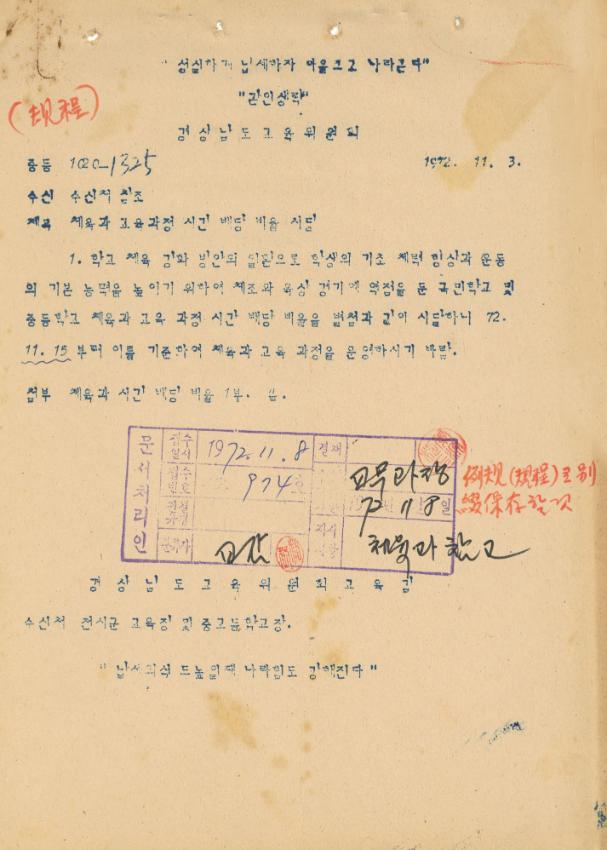 "성실하게 납세하자 마을크고 나라큰다"
"관인생략"
(規程)
경상남도교육위원회
중등 1020-1325 1972. 11. 3.
수신 수신처 참조
제목 체육과 교육과정 시간 배당 비율 시달
1. 학교 체육 강화 방안의 일환으로 학생의 기초 체력 향상과 운동
의 기본 능력을 높이기 위하여 체조와 육상 경기에 역점을 둔 국민학교 및
중등학교 체육과 교육 과정 시간 배당 비율을 별첨과 같이 시달하니 72.
11. 15 부터 이를 기준하여 체육과 교육 과정을 운영하시기 바람.
첨부 체육과 시간 배당 비율 1부. 끝.
문서처리인
접수일시 1972. 11. 8 결재
접수번호 974호
교무과장
72 11 8 일
교감
체육과 참고
例規(規程)
綴保存할것
경상남도교육위원회교육감
수신처 전시군 교육장 및 중고등학교장.
"납세의식 드높일때 나라힘도 강해진다"